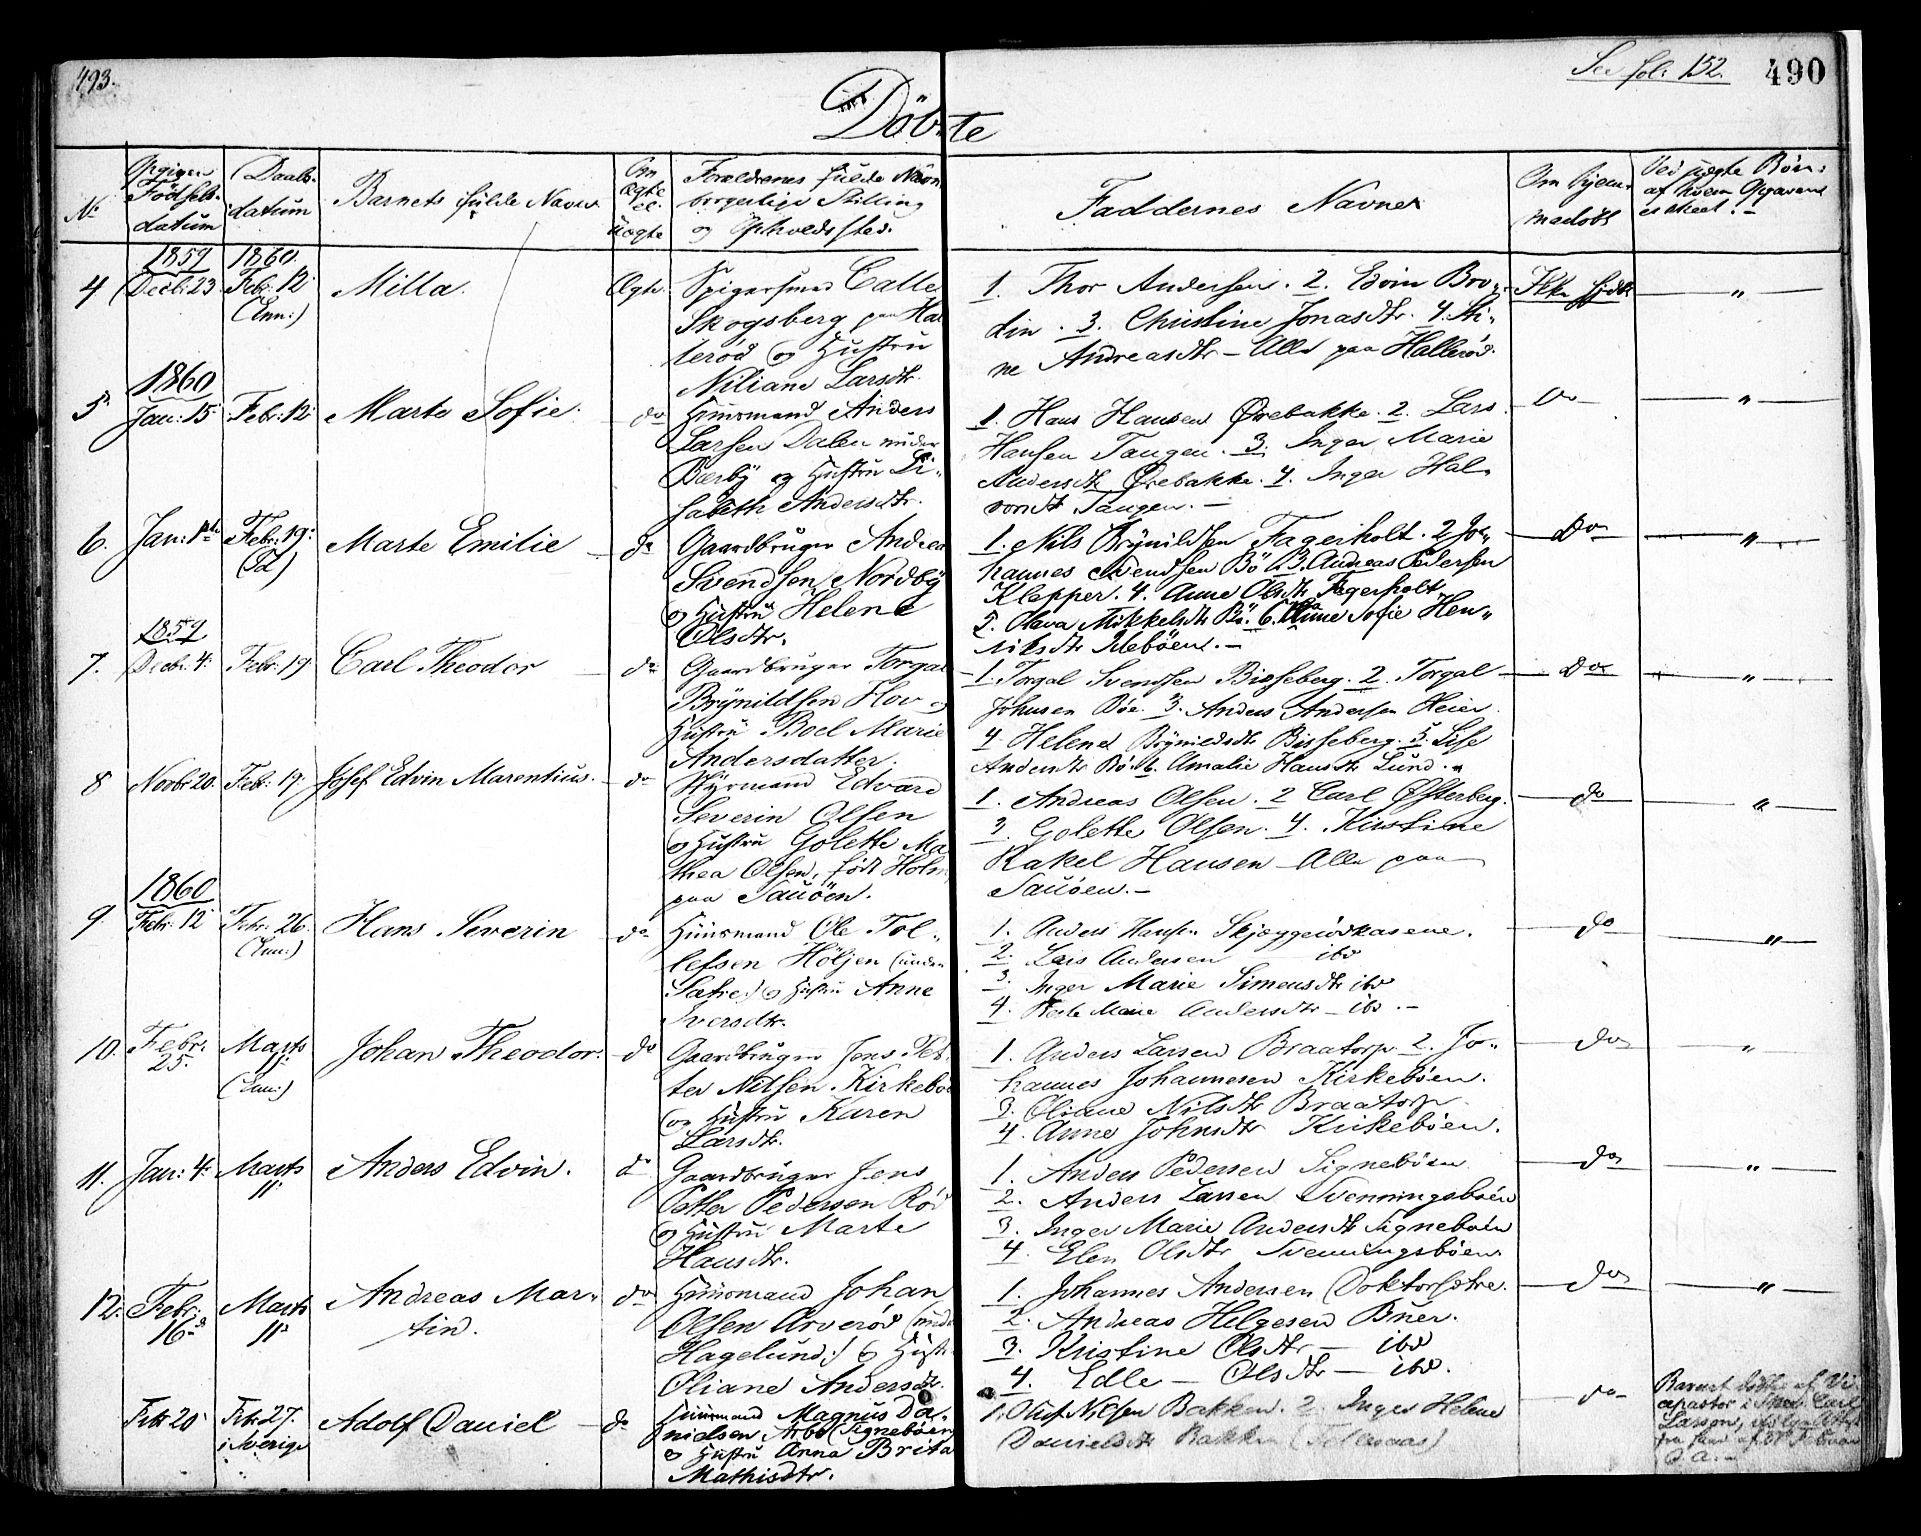 493.
See fol. 152. 490
Döbte
No
Opgiven Födsels-datum
Daabs-datum
Barnets fulde Navn
Om ægte el. uægte
Forældrenes fulde Navn borgerlige Stilling og Opholdssted.
Faddernes Navne
Om hjemmedöbt
Ved uægte Börn: af hvem Opgavene er skeet.
1859 1860.
4 Decbr. 23 Febr. 12 (Enn:) Milla. Ægte.
Spigersmed Calle
Skogsberg paa Hal
lerød og Hustru
Niliane Larsdtr.
1. Thor Andersen. 2. Edvin Bro-
din. 3. Christine Jonasdtr. 4. Sti-
ne Andreasdtr – Alle paa Hallerød.
Ikke hjdbt "
1860
5. Jan: 15 Febr. 12 Marte Sofie. do
Huusmand Anders
Larsen Dalen under
Berby og Hustru Li-
sabeth Andersdtr.
1. Hans Hansen Ørebakke. 2. Lars
Hansen Tangen. 3. Inger Marie
Andersdtr Ørebakke. 4. Inger Hal-
vorsdtr Tangen. –
Do "
6. Jan: 1ste Febr. 19. (Id) Marte Emilie do
Gaardbruger Andreas
Svendsen Nordby
og Hustru Helene
Olsdtr.
1. Nils Brynildsen Fagerholt. 2 Jo-
hannes Svendsen Bö 3. Andreas Pedersen
Klepper. 4. Anne Olsdtr Fagerholt
5. Olava Mikkelsdtr Bö. 6. Anne Sofie Hen-
riksdtr Idebøen. –
Do "
1859
7. Decbr. 4. Febr. 19 Carl Theodor do
Gaardbruger Torgal
Brynildsen Hov og
Hustru Boel Marie
Andersdatter.
1. Torgal Svendsen Bisseberg. 2. Torgal
Johnsen Böe. 3. Anders Andersen Heier.
4. Helene Brynildsdtr Bisseberg. 5. Lise
Andersdtr Bö. 6. Amalie Hansdtr Lund.
Do "
8 Novbr 20. Febr: 19. Josef Edvin Marentius. do
Styrmand Edvard
Severin Olsen
og Hustru Golette Ma
thea Olsen, født Holm,
paa Sauöen.
1. Andreas Olsen. 2 Carl Østerberg.
3. Golette Olsen. 4. Kirstine
Rakel Hansen – Alle paa
Sauöen. –
do "
1860
9. Febr. 12 Febr. 26. (Enn:) Hans Severin do
Huusmand Ole Tol-
lefsen Höljen (under
Sæfie) og Hustru Anne
Iversdtr.
1. Anders Hansen Skjeggerödkasene.
2. Lars Andersen ibd
3. Inger Marie Simensdtr ibd
4. Marie Andersdtr – ibd. –
do "
10. Febr. 25. Marts 11. (Enn:) Johan Theodor. do
Gaardbruger Jens Pet
ter Nilsen Kirkebö
og Hustru Karen
Larsdtr.
1. Anders Larsen Braatorp. 2. Jo-
hannes Johannesen Kirkebøen.
3. Oliane Nilsdtr Braatorp.
4. Anne Johnsdtr Kirkebøen.
do "
11. Jan: 4. Marts 11. Anders Edvin. do
Gaardbruger Jens
Petter Pedersen Röd
og Hustru Marte
Hansdtr.
1. Anders Pedersen Signebøen
2. Anders Larsen Svenningsbøen
3. Inger Marie Andersdtr Signebøen
4. Elen Olsdtr Svenningsbøen
do "
12. Febr. 16de Marts 11. Andreas Mar-
tin. do
Huusmand Johan
Olsen Arverød (under
Hagelund) og Hustr.
Oliane Andersdtr.
1. Johannes Andersen Doktorsætre.
2. Andreas Helgesen Buer.
3. Kristine Olsdtr – ibd
4. Edle – Olsdtr – ibd.
do "
Febr 20 Febr. 27. i Sverige Adolf Daniel do
Huusmand Magnus Da-
nielsen Arbo (Signebøen)
og Hustru Anna Brita
Mathisdtr.
1. Oluf Nilsen Bakken. 2. Inger Helene
Danielsdtr Bakken
do
Barnet döbt af Vi
cepastor i Carl
Larson,